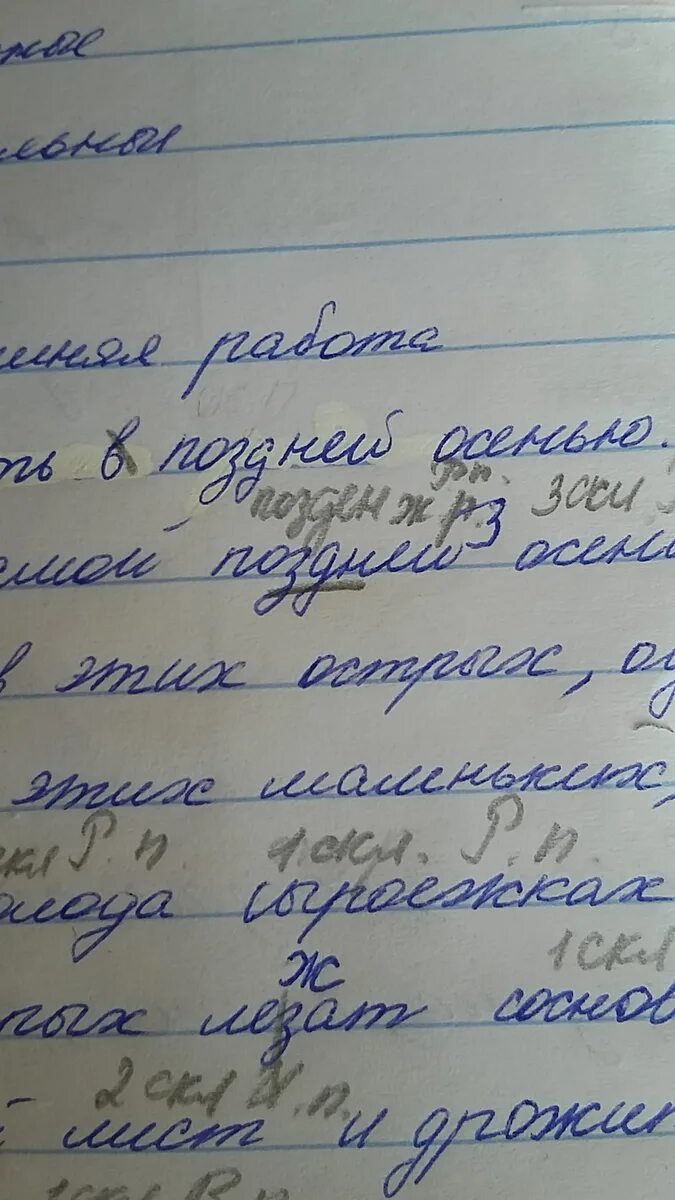 ные
льный
шняя работа
ть в поздней осенью.
Р.п.
позден ж р. 3 3 скл
самой поздней осен
в этих острых, о
этих маленьких,
кл Р. п. 1 скл. Р. п.
олода сыроежках
ж 1 скл
рых лезат соснов
2 скл И. п.
й лист и дрожит
1 скл В. п.